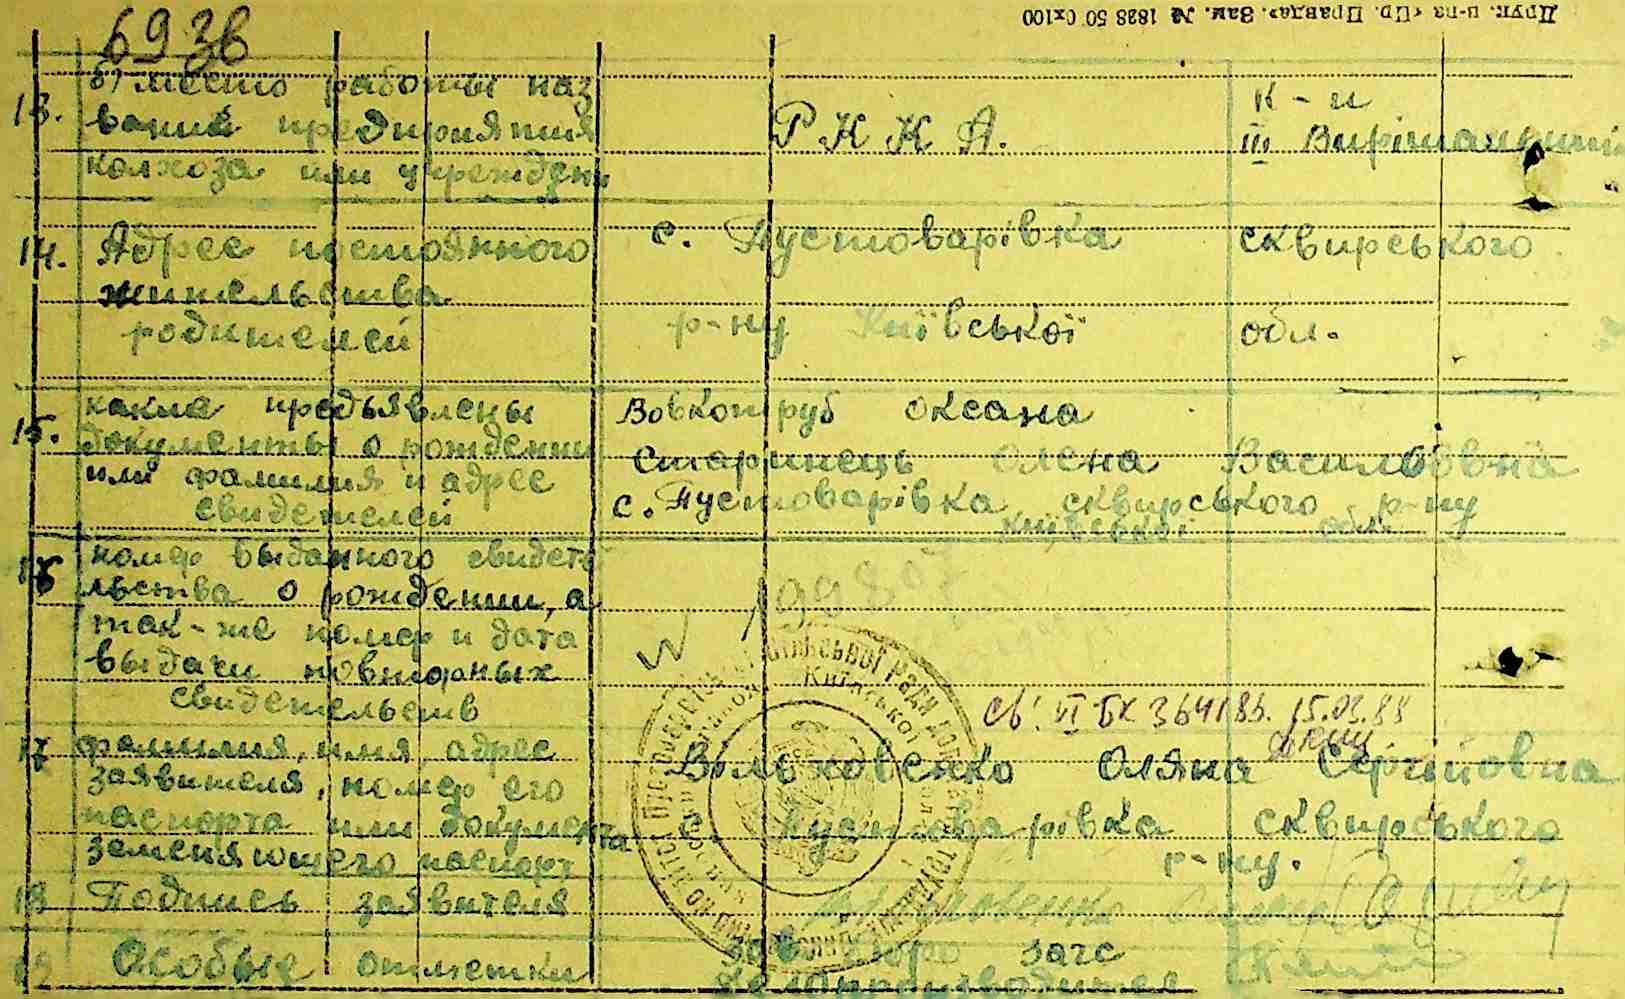 Друк. п-ва «Пр. Правда». Зам. № 1828 50 0х100
69 зв
13. б) место работы наз
вание предприятия
колхоза или учрежден
Р К К А.
к-п
III Вирішальний
14. Адрес постоянного
жительства
родителей
с. Пустоварівка сквирського
р-ну Київської обл.
15. какие предьявлены
документы о рождении
или фамилия и адрес
свидетелей
Вовкотруб Оксана
Старинець Олена Василівна
с. Пустоварівка сквирського р-ну
Київської обл.
16 номер выданного свидете
льства о рождении, а
так-же номер и дата
выдачи повторных
свидетельств
св. VI БК 364183. 15.03.88
17 фамилия, имя, адрес
заявителя, номер его
паспорта или документа
заменяющего паспорт
Вольховенко Оляна Сергіївна
с. Пустоварівка сквирського
р-ну.
18 Подпись заявителя
19 Особые отметки
зав бюро загс
Делопроизводител